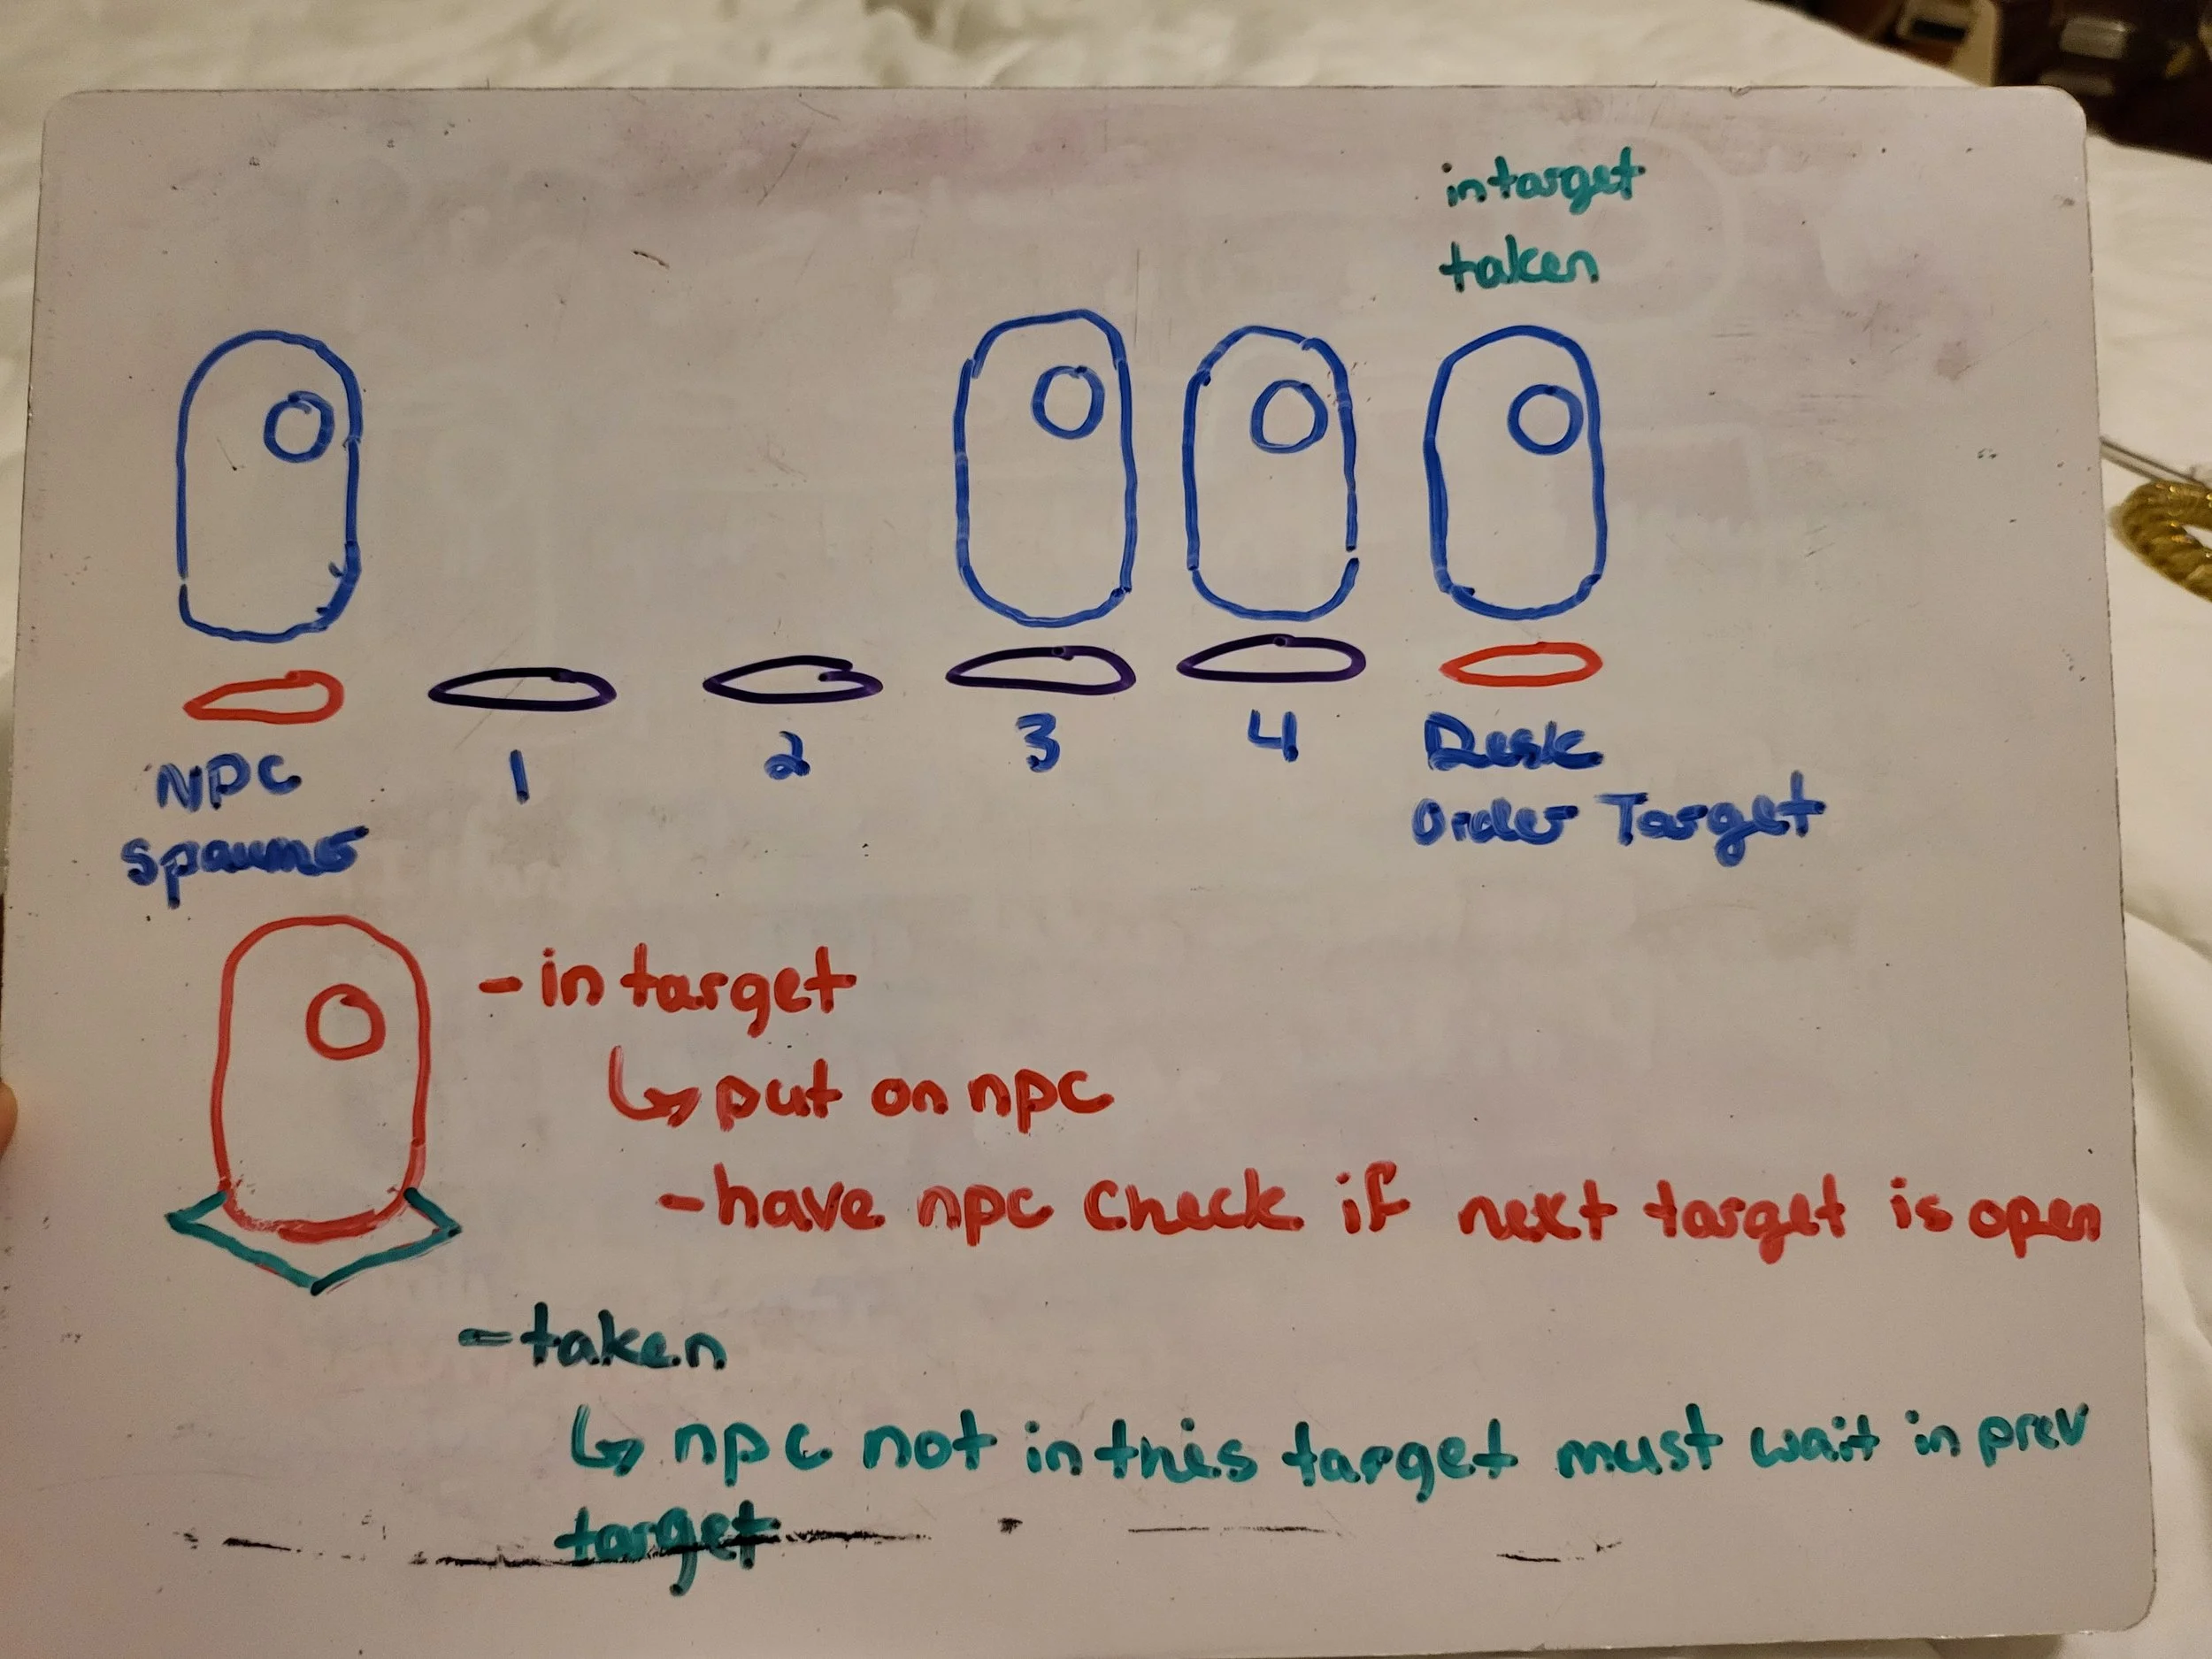 intarget
taken
NPC
spawns
1
2
3
4
Desk
Order Target
- in target
↳ put on npc
- have npc check if next target is open
- taken
↳ npc not in this target must wait in prev
target